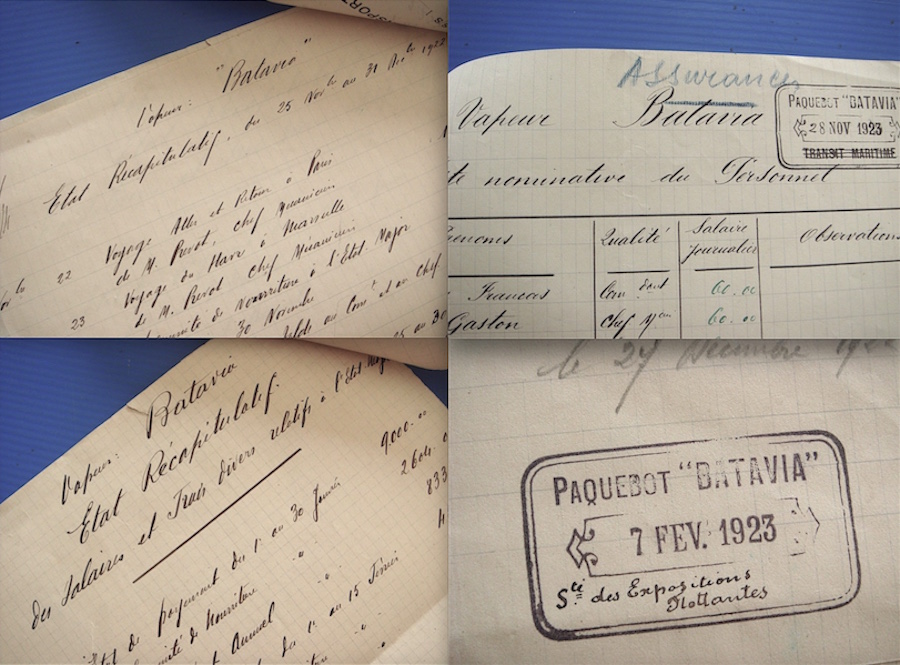 Vapeur: "Batavia"
Etat Récapitulatif, du 25 Novbre au 31 Décbre 1922
22 Voyage Aller et Retour à Paris
de M. Prevot, Chef Mécanicien
23 Voyage du Havre à Marseille
de M. Prevot Chef Mécanicien
de Nourriture à l'Etat Major
30 Novembre
au Comt et au Chef
Assurances
Vapeur Batavia
PAQUEBOT "BATAVIA"
28 NOV 1923
TRANSIT MARITIME
te nominative du Personnel
Prenoms Qualité Salaire Journalier Observations
Francois Com dant 60.00
Gaston Chef Mcien 60.00
Vapeur: Batavia
Etat Récapitulatif.
des Salaires et Frais divers relatifs à l'Etat
9.000.00
de payement du 1er au 30 Janvier 2604.
de Nourriture " 833
Annuel "
du 1er au 15 Février
Nourriture "
le 27 Décembre 192
PAQUEBOT "BATAVIA"
7 FEV. 1923
Sté des Expositions
Flottantes